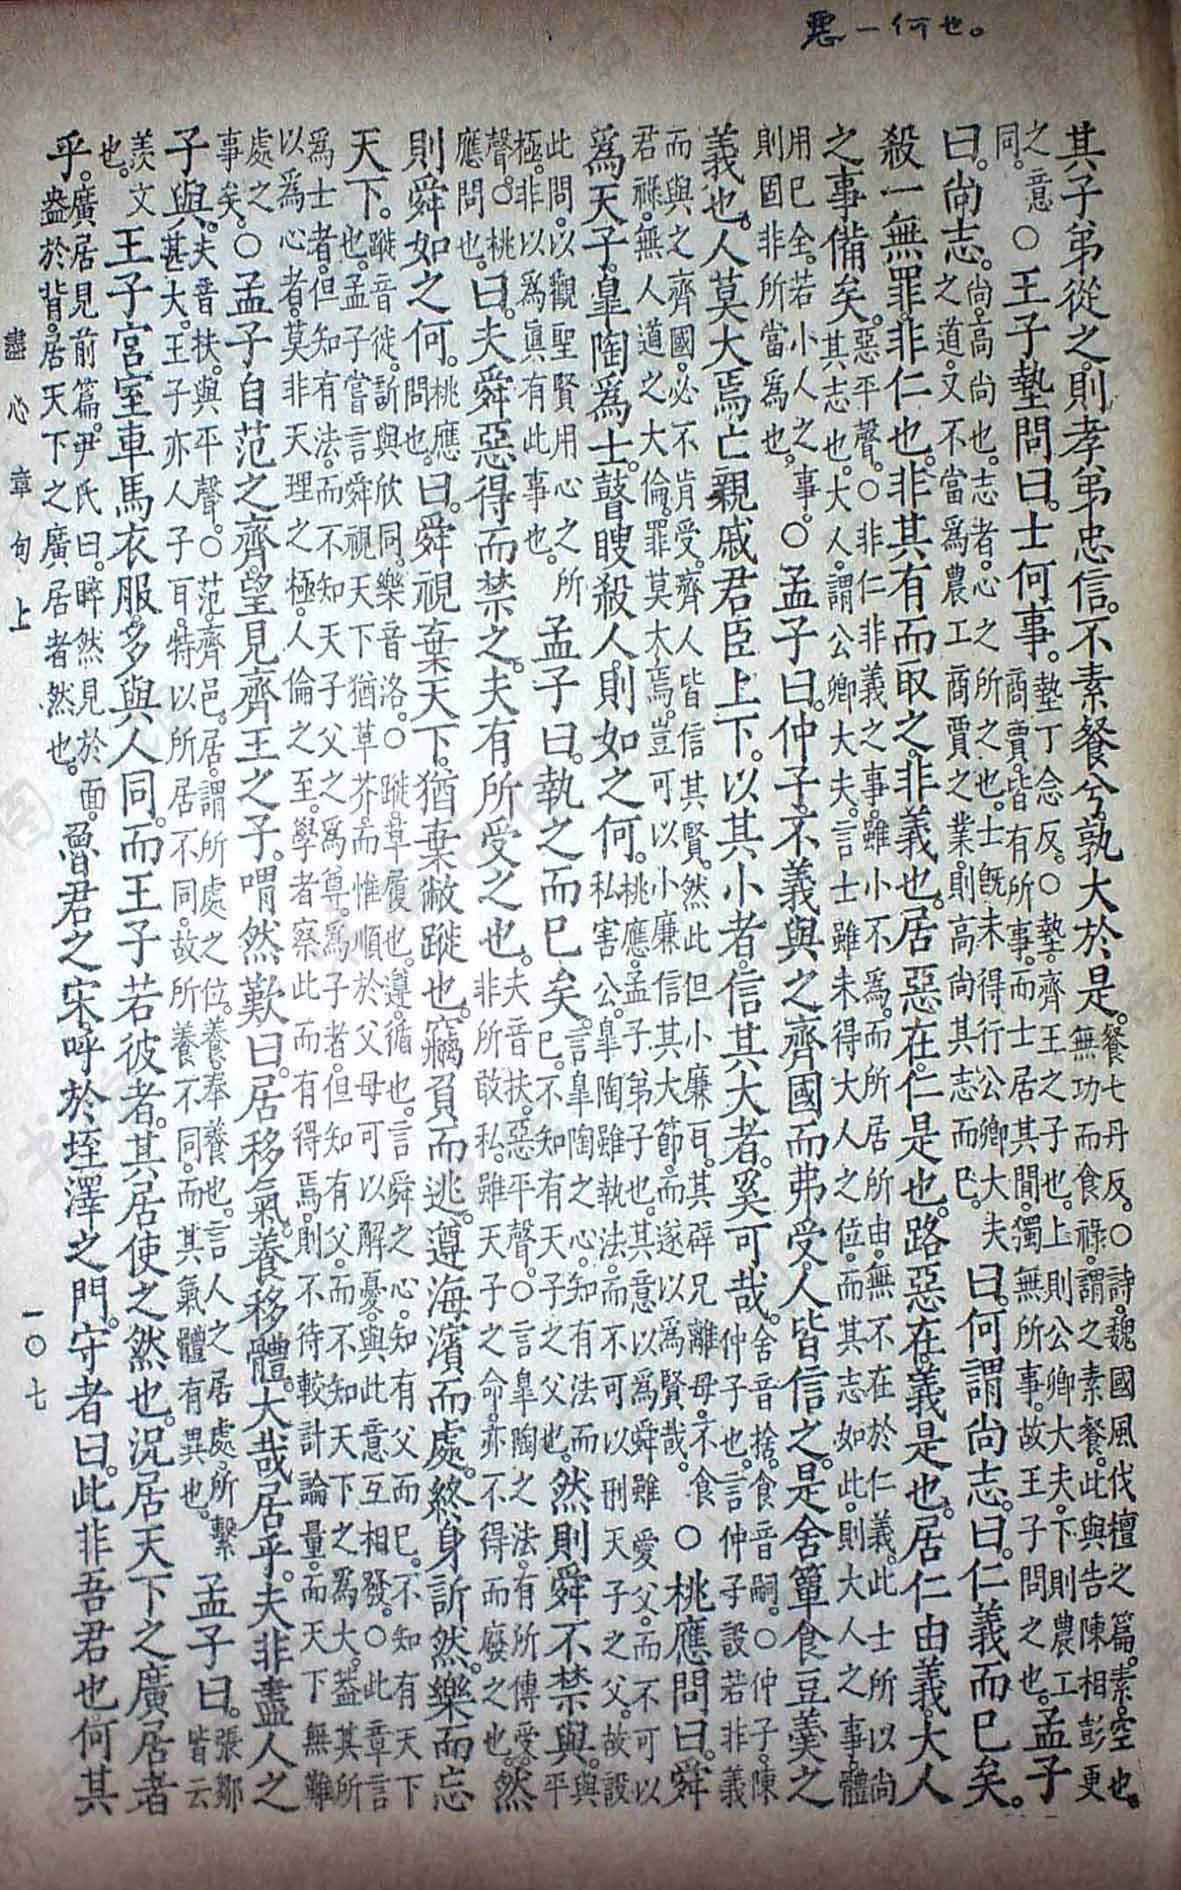 惡一何也。
其子弟從之。則孝弟忠信。不素餐兮。孰大於是。餐七丹反。○詩。魏國風伐檀之篇。素。空也。無功而食祿。謂之素餐。此與告陳相彭更
之意同。○王子墊問曰。士何事。墊丁念反。○墊。齊王之子也。上則公卿大夫。下則農工商賈。皆有所事。而士居其間。獨無所事。故王子問之也。孟子
曰。尚志。尚。高尚也。志者。心之所之也。士旣未得行公卿大夫之道。又不當爲農工商賈之業。則高尚其志而已。曰。何謂尚志。曰。仁義而已矣。
殺一無罪。非仁也。非其有而取之。非義也。居惡在。仁是也。路惡在。義是也。居仁由義。大人
之事備矣。惡平聲。○非仁非義之事。雖小不爲。而所居所由。無不在於仁義。此士所以尚其志也。大人。謂公卿大夫。言士雖未得大人之位。而其志如此。則大人之事。體
用已全。若小人之事。則固非所當爲也。○孟子曰。仲子。不義與之齊國而弗受。人皆信之。是舍簞食豆羹之
義也。人莫大焉亡親戚君臣上下。以其小者。信其大者。奚可哉。舍音捨。食音嗣。○仲子。陳仲子也。言仲子設若非義
而與之齊國。必不肯受。齊人皆信其賢。然此但小廉耳。其辟兄離母。不食君祿。無人道之大倫。罪莫大焉。豈可以小廉信其大節。而遂以爲賢哉。○桃應問曰。舜
爲天子。皐陶爲士。瞽瞍殺人。則如之何。桃應。孟子弟子也。其意以爲舜雖愛父。而不可以私害公。皐陶雖執法。而不可以刑天子之父。故設
此問。以觀聖賢用心之所極。非以爲眞有此事也。孟子曰。執之而已矣。言皐陶之心。知有法而已。不知有天子之父也。然則舜不禁與。與平
聲。○桃應問也。曰。夫舜惡得而禁之。夫有所受之也。夫音扶。惡平聲。○言皐陶之法。有所傳受。非所敢私。雖天子之命。亦不得而廢之也。然
則舜如之何。桃應問也。曰。舜視棄天下。猶棄敝蹝也。竊負而逃。遵海濱而處。終身訢然。樂而忘
天下。蹝音徙。訢與欣同。樂音洛。○蹝。草履也。遵。循也。言舜之心。知有父而已。不知有天下也。孟子嘗言舜視天下猶草芥。而惟順於父母可以解憂。與此意互相發。○此章言
爲士者。但知有法。而不知天子父之爲尊。爲子者。但知有父。而不知天下之爲大。蓋其所以爲心者。莫非天理之極。人倫之至。學者察此而有得焉。則不待較計論量。而天下無難
處之事矣。○孟子自范之齊。望見齊王之子。喟然歎曰。居移氣。養移體。大哉居乎。夫非盡人之
子與。夫音扶。與平聲。○范。齊邑。居。謂所處之位。養。奉養也。言人之居處。所繫甚大。王子亦人子耳。特以所居不同。故所養不同。而其氣體有異也。孟子曰。張鄒皆云
羨文也。王子宮室車馬衣服。多與人同。而王子若彼者。其居使之然也。況居天下之廣居者
乎。廣居見前篇。尹氏曰。睟然見於面。盎於背。居天下之廣居者然也。魯君之宋。呼於垤澤之門。守者曰。此非吾君也。何其
盡心章句上
一〇七